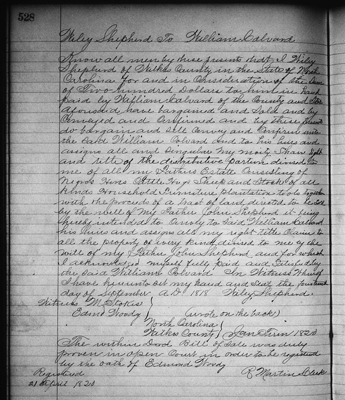 528
Wiley Shepherd To William Colvard
Know all men by these presents that I Wiley
Shepherd of Wilkes County in the State of North
Carolina for and in Consideration of the Sum
of Two hundred Dollars to him in hand
paid by William Colvard of the County and State
aforesaid have bargained and Sold and by
Conveyed and Confirmed and by these presents
do bargain and Sell Convey and Confirm unto
the Said William Colvard and to his heirs and
assigns all and Singular my part Share Right
and title of the distributive portion divised to
me of all my Fathers Estate Consisting of
Negros Horses Cattle Hogs Sheep and Stock of all
kinds Household Furniture Plantation tools together
with the proceeds of a tract of land directed to be sold
by the will of my Father John Shepherd it being
hereby intended to Convey to Said William Colvard
his heirs and assigns all my right title Claims to
all the property of every kind divised to me by the
will of my Father John Shepherd and for which
I acknowledge myself fully paid and Satisfied by
the Said William Colvard In Witness Whereof
I have hereunto set my hand and Seal the
day of September AD. 1818 Wiley Shepherd
Witness M. Stokes
Edmd Woody (wrote on the back)
North Carolina
Wilkes County Term 1820
The within Deed Bill of Sale was duly
proven in open Court in order to be registered
by the oath of Edmund Woody
Registered R Martin Clerk
21 April 1820